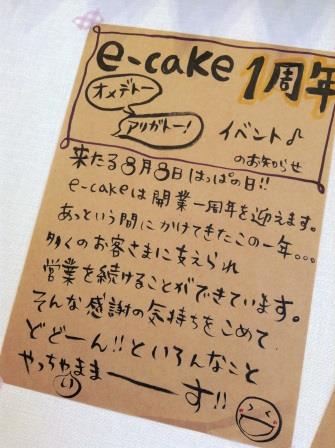 e-cake 1周年
オメデトー
アリガトー!
イベント♪
のお知らせ
来たる8月8日はっぱの日!!
e-cakeは開業一周年を迎えます。
あっという間にかけてきたこの一年。。。
多くのお客さまに支えられ
営業を続けることができています。
そんな感謝の気持ちをこめて
どどーん!!といろんなこと
やっちゃいまーーーす!!